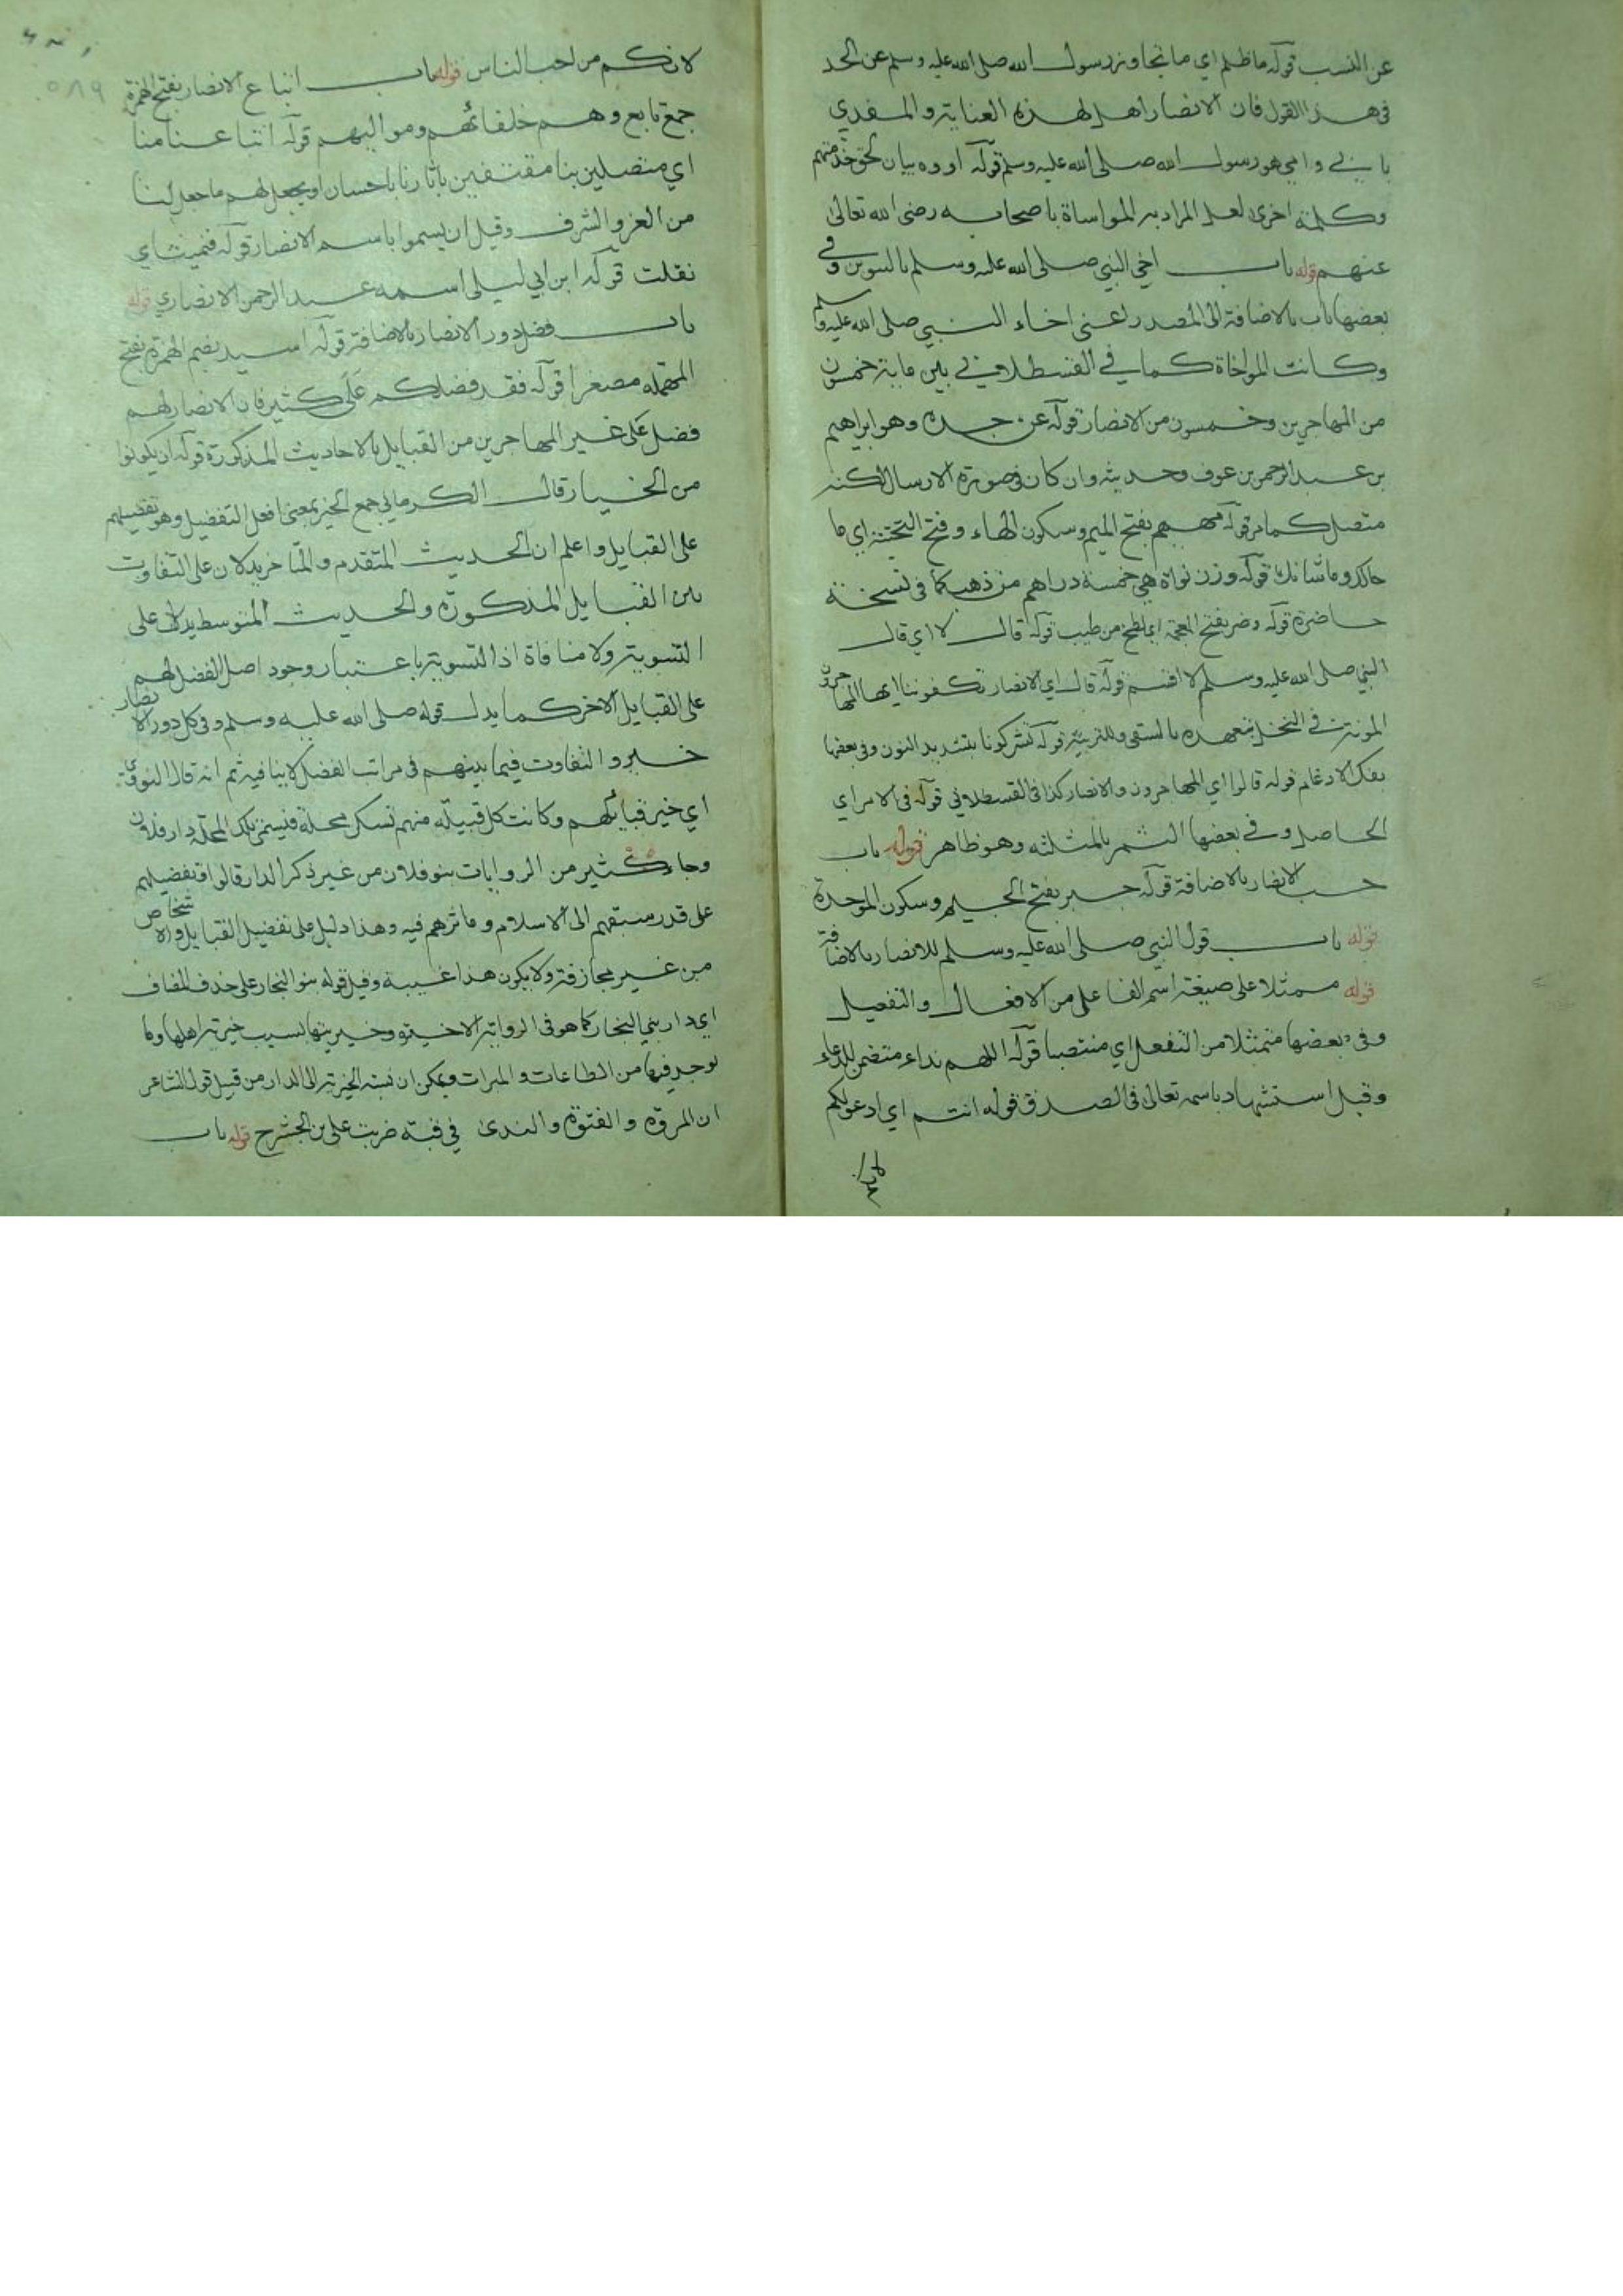 عن النسب قوله ما ظلم اي ما تجاوز رسول الله صلى الله عليه وسلم عن الحد
في هذا القول فان الانصار اهل لهذه العناية والمفدي
بابي وامي هو رسول الله صلى الله عليه وسلم قوله اووه بيان لحق
وكلمة اخرى لعل المراد به المواساة باصحابه رضى الله تعالى
عنهم قوله باب اخى النبي صلى الله عليه وسلم بالتنوين وفي
بعضها باب بالاضافة الى المصدر اعنى اخاء النبي صلى الله عليه وسلم
وكانت المواخاة كما في القسطلاني بين ماية خمسون
من المهاجرين وخمسون من الانصار قوله عن جده وهو ابراهيم
بن عبد الرحمن بن عوف وحديثه وان كان في صورة الارسال لكنه
متصل كما مر قوله مهيم بفتح الميم وسكون الهاء وفتح التحتية اي ما
حالك وما شانك قوله وزن نواة هي خمسة دراهم من ذهب كما في نسخة
حاضرة قوله وضر بفتح المعجمة اي لطخ من طيب قوله قال لا اي قال
النبي صلى الله عليه وسلم لا اقسم قوله قال اي الانصار تكفوننا ايها المهاجرون
المونة في النخل بتعهده بالسقي والتربية قوله تشركونا بتشديد النون وفي بعضها
بفك الادغام قوله قالوا اي المهاجرون والانصار كذا في القسطلاني قوله في الامر اي
الحاصل وفي بعضها الثمر بالمثلثه وهو ظاهر قوله باب
حب الانصار بالاضافة قوله جبر بفتح الجيم وسكون الموحدة
قوله باب قول النبي صلى الله عليه وسلم للانصار بالاضافة
قوله ممثلا على صيغة اسم الفاعل من الافعال والتفعيل
وفي بعضها متمثلا من التفعل اي منتصبا قوله اللهم نداء متضمن للدعاء
وقيل استشهاد باسمه تعالى في الصدق قوله انتم اي ادعولكم
لانكم من احب الناس قوله باب اتباع الانصار بفتح الهمزة
جمع تابع وهم خلفائهم ومواليهم قوله اتباعنا منا
اي متصلين بنا مقتفين باثارنا باحسان او يجعل لهم ما جعل لنا
من العز والشرف وقيل ان يسموا باسم الانصار قوله فنميت اي
نقلت قوله ابن ابي ليلى اسمه عبد الرحمن الانصاري قوله
باب فضل دور الانصار بالاضافة قوله اسيد بضم الهمزة بفتح
المهمله مصغرا قوله فقد فضلكم على كثير فان الانصار لهم
فضل على غير المهاجرين من القبايل بالاحاديث المذكورة قوله ان يكونوا
من الخيار قال الكرماني جمع الخير بمعنى افعل التفضيل وهو تفضيلهم
على القبايل واعلم ان الحديث المتقدم والمتاخر يدلان على التفاوت
بين القبايل المذكورة والحديث المتوسط يدل على
التسوية ولا منافاة اذ التسوية باعتبار وجود اصل الفضل لهم
على القبايل الاخر كما يدل قوله صلى الله عليه وسلم وفي كل دور الانصار
خير والتفاوت فيما بينهم في مراتب الفضل لا ينافيه ثم انه قال النووي
اي خير قبائلهم وكانت كل قبيلة منهم تسكن محلة فتسمى تلك المحلة دار فلان
وجاء كثير من الروايات بنو فلان من غير ذكر الدار قالوا وتفضيلهم
على قدر سبقهم الى الاسلام وماثرهم فيه وهذا دليل على تفضيل القبايل والاشخاص
من غير مجازفة ولا يكون هذا غيبة وقيل قوله بنو النجار على حذف المضاف
اي دار بني النجار كما هو في الرواية الاخيره وخيريتها بسبب خيرية اهلها وما
يوجد فيها من الطاعات والمبرات ويمكن ان نسبة الخيرية الى الدار من قبيل قول الشاعر
ان المروة والفتوة والندى في قبة ضربت على بن الحشرج قوله باب